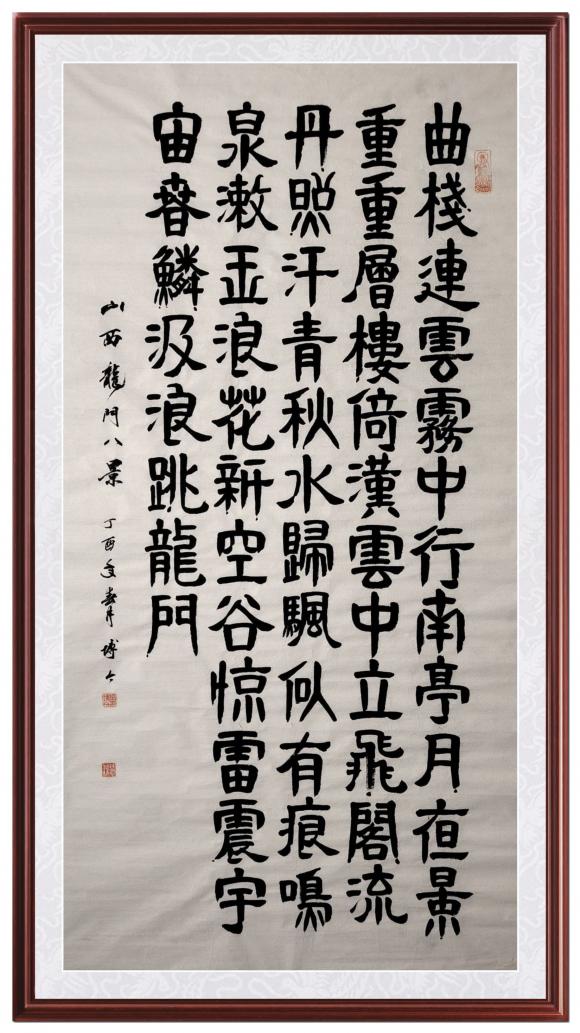 曲棧連雲霧中行南亭月夜景
重重層樓倚漢雲中立飛閣流
丹照汗青秋水歸颿似有痕鳴
泉漱玉浪花新空谷惊雷震宇
宙春鱗汲浪跳龍門
山西龍門八景 丁酉年